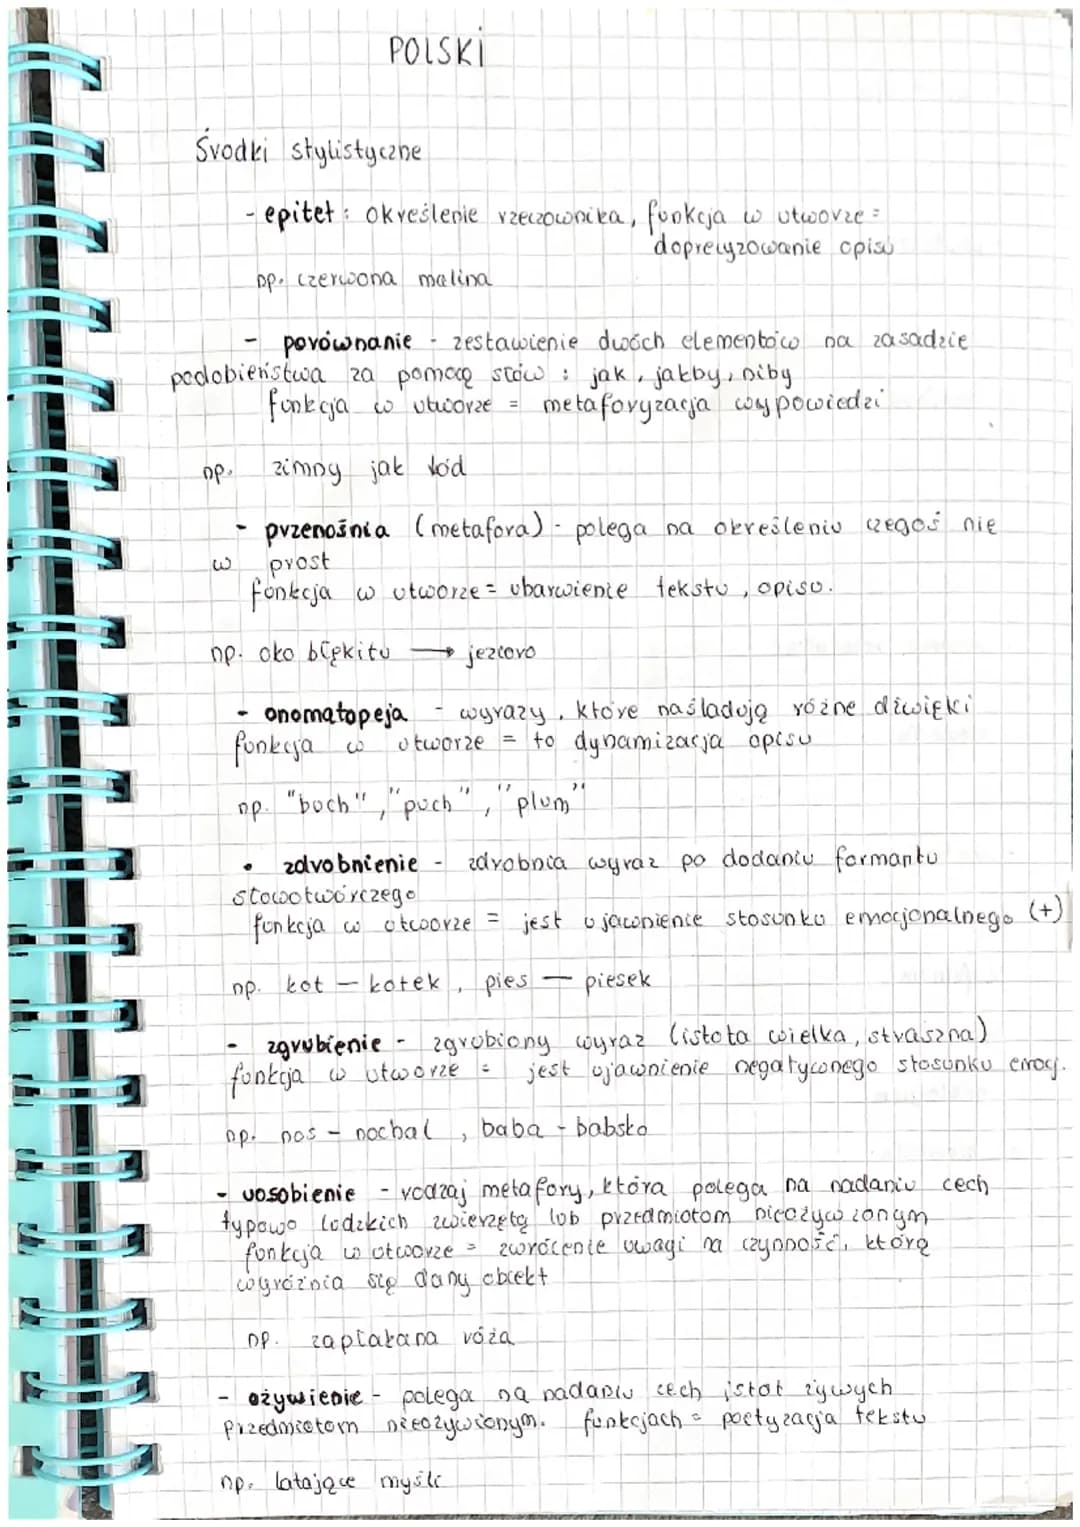 POLSKI
Środki stylistyczne
- epitet: określenie rzeczownika, funkcja w utworze =
doprecyzowanie opisu
np. czerwona malina
- porównanie - zestawienie dwóch elementów na zasadzie
podobieństwa za pomocą słów : jak, jakby, niby
funkcja w utworze = metaforyzacja wypowiedzi
np. zimny jak lód
- przenośnia (metafora) - polega na określeniu czegoś nie
w prost
funkcja w utworze = ubarwienie tekstu, opisu.
np. oko błękitu → jezioro
- onomatopeja - wyrazy, które naśladują różne dźwięki
funkcja w utworze = to dynamizacja opisu
np. "buch", "puch", "plum"
• zdrobnienie - zdrobnia wyraz po dodaniu formantu
słowotwórczego
funkcja w utworze = jest ujawnienie stosunku emocjonalnego (+)
np. kot - kotek, pies - piesek
- zgrubienie - zgrubiony wyraz (istota wielka, straszna)
funkcja w utworze = jest ujawnienie negatywnego stosunku emocj.
np. nos - nochal, baba - babsko
- uosobienie - rodzaj metafory, która polega na nadaniu cech
typowo ludzkich zwierzętą lub przedmiotom nieożywionym
funkcja w utworze = zwrócenie uwagi na czynność, którą
wyróżnia się dany obiekt
np. zapłakana róża
- ożywienie - polega na nadaniu cech istot żywych
przedmiotom nieożywionym. funkcjach = poetyzacja tekstu
np. latające myśli